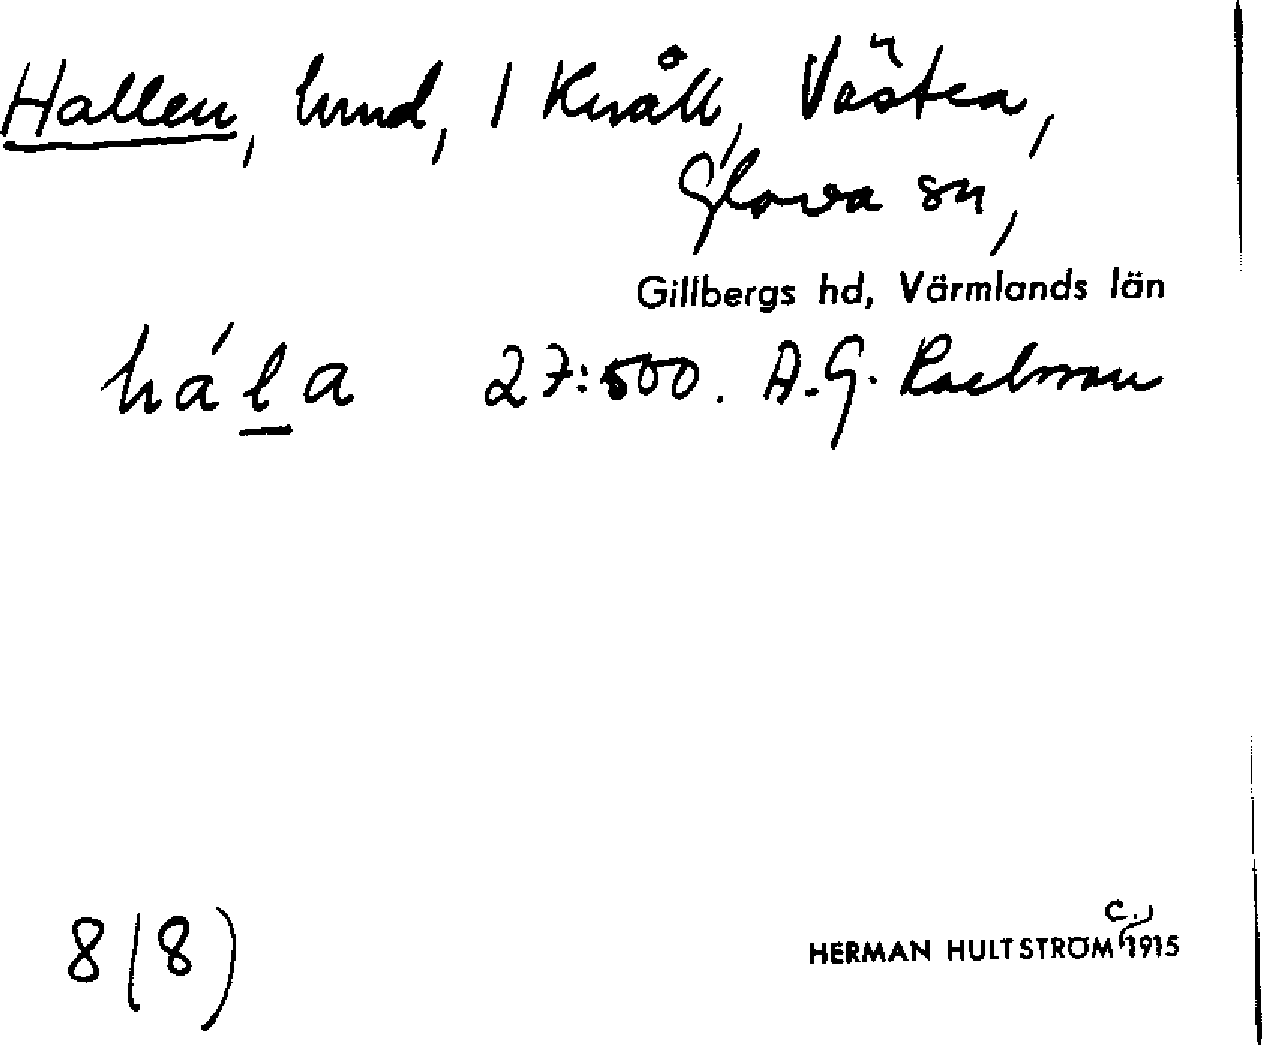 Hallen, lund, 1 Knöåll, Västra,
Glava sn,
Gillbergs hd, Värmlands län
hála 27:500. A.G.
8(8)
c.,
HERMAN HULTSTRÖM 1915